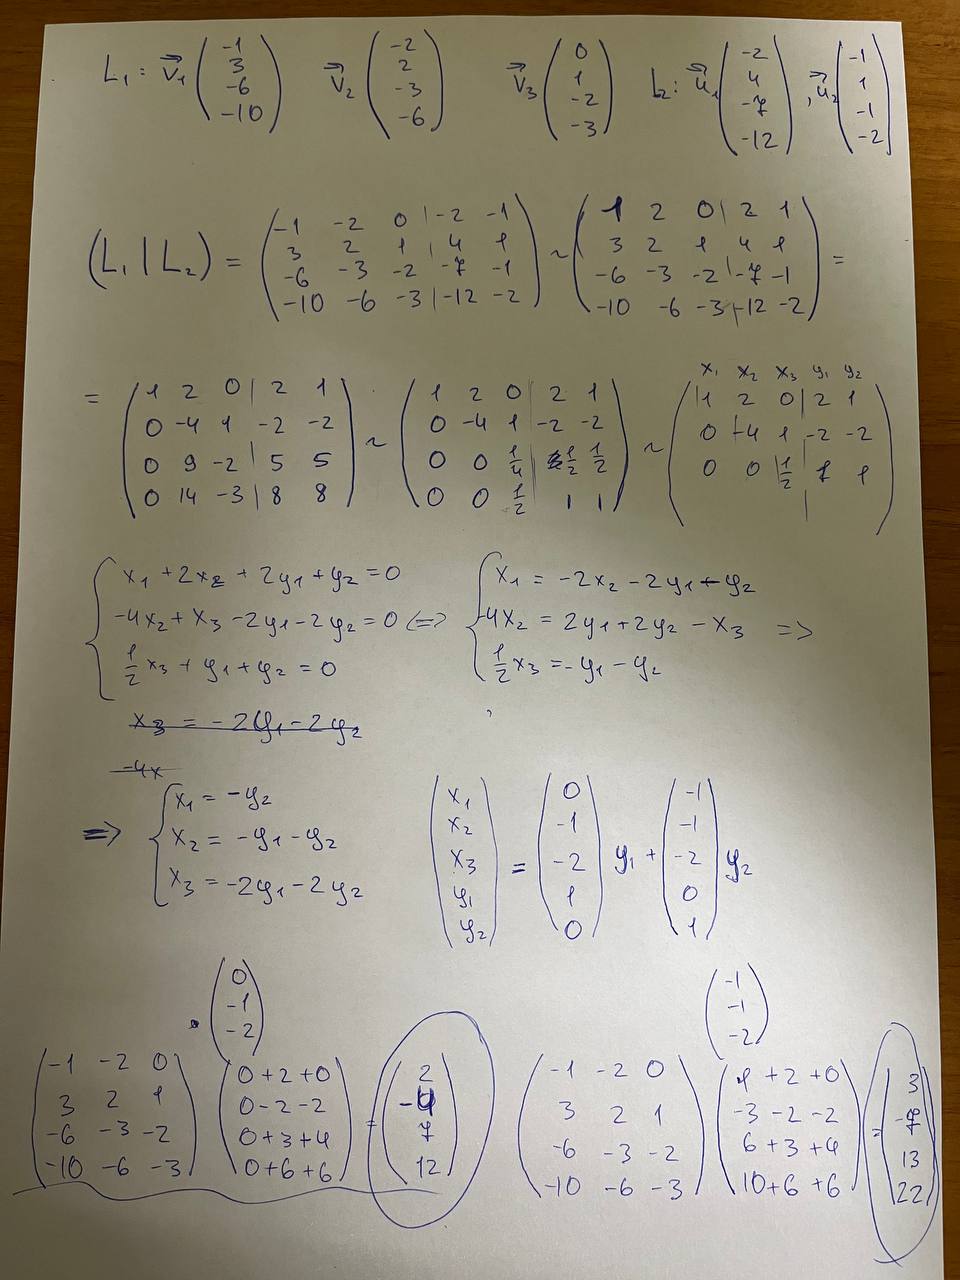 L₁: v⃗₁ (-1 3 -6 -10) v⃗₂ (-2 2 -3 -6) v⃗₃ (0 1 -2 -3) L₂: u⃗₁ (-2 4 -7 -12), u⃗₂ (-1 1 -1 -2)
(L₁ | L₂) =
-1 -2 0 | -2 -1
3 2 1 | 4 1
-6 -3 -2 | -7 -1
-10 -6 -3 | -12 -2
~
1 2 0 | 2 1
3 2 1 4 1
-6 -3 -2 | -7 -1
-10 -6 -3 | -12 -2
=
=
1 2 0 | 2 1
0 -4 1 | -2 -2
0 9 -2 | 5 5
0 14 -3 | 8 8
~
1 2 0 | 2 1
0 -4 1 | -2 -2
0 0 1/4 | 1/2 1/2
0 0 1/2 | 1 1
~
x₁ x₂ x₃ y₁ y₂
1 2 0 | 2 1
0 -4 1 | -2 -2
0 0 1/2 | 1 1
x₁ + 2x₂ + 2y₁ + y₂ = 0
-4x₂ + x₃ - 2y₁ - 2y₂ = 0 <=>
1/2 x₃ + y₁ + y₂ = 0
x₁ = -2x₂ - 2y₁ - y₂
-4x₂ = 2y₁ + 2y₂ - x₃ =>
1/2 x₃ = -y₁ - y₂
x₃ = -2y₁ - 2y₂
-4x
=>
x₁ = -y₂
x₂ = -y₁ - y₂
x₃ = -2y₁ - 2y₂
(x₁ x₂ x₃ y₁ y₂) = (0 -1 -2 1 0) y₁ + (-1 -1 -2 0 1) y₂
· (0 -1 -2)
-1 -2 0
3 2 1
-6 -3 -2
-10 -6 -3
0+2+0
0-2-2
0+3+4
0+6+6
=
2
-4
7
12
(-1 -1 -2)
-1 -2 0
3 2 1
-6 -3 -2
-10 -6 -3
1+2+0
-3-2-2
6+3+4
10+6+6
=
3
-7
13
22